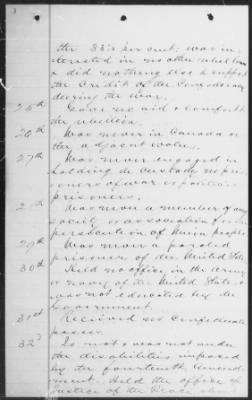 the 33⅓ per cent; was in-
terested in no other rebel loan
& did nothing else to support
the Credit of the Confederacy
during the war.
25th Gave no aid & comfort to
the rebellion.
26th Was never in Canada or
the adjacent
27th Was never engaged in
holding in Custody
prisoners of war or political
prisoners.
28th Was never a member of any
society or association for the
persecution of Union people
29th Was never a paroled
prisoner of the United States
30th Held no office in the Army
or navy of the United States &
was not educated by the
Government.
31st Received no Confederate
passes.
32d Is not & was not under
the disabilities imposed
by the fourteenth Amend-
ment. Held the office of
Justice of the Peace